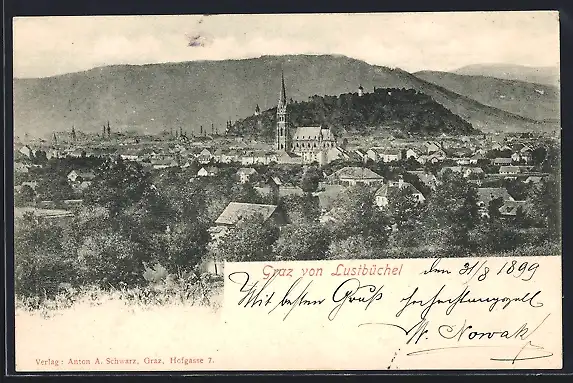 Graz von Lustbüchel
den 31/8 1899
Mit besten Gruß hochachtungsvoll
W. Nowak
Verlag: Anton A. Schwarz, Graz, Hofgasse 7.